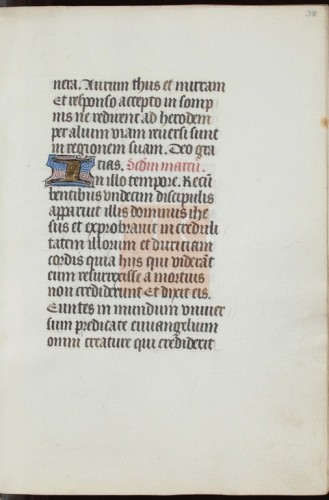 38
nera. Aurum thus et mirram
Et responso accepto in somp
nis ne redirent ad herodem
per aliam viam reversi sunt
in regionem suam. Deo gra
tias. Scdm marcū.
In illo tempore. Recū
bentibus undecim discipulis
apparuit illis dominus ihe
sus et exprobravit increduli
tatem illorum et duriciam
cordis quia hiis qui viderāt
eum resurrexisse a mortuis
non crediderunt Et dixit eis.
Euntes in mundum univer
sum predicate euuangelium
omni creature qui crediderit